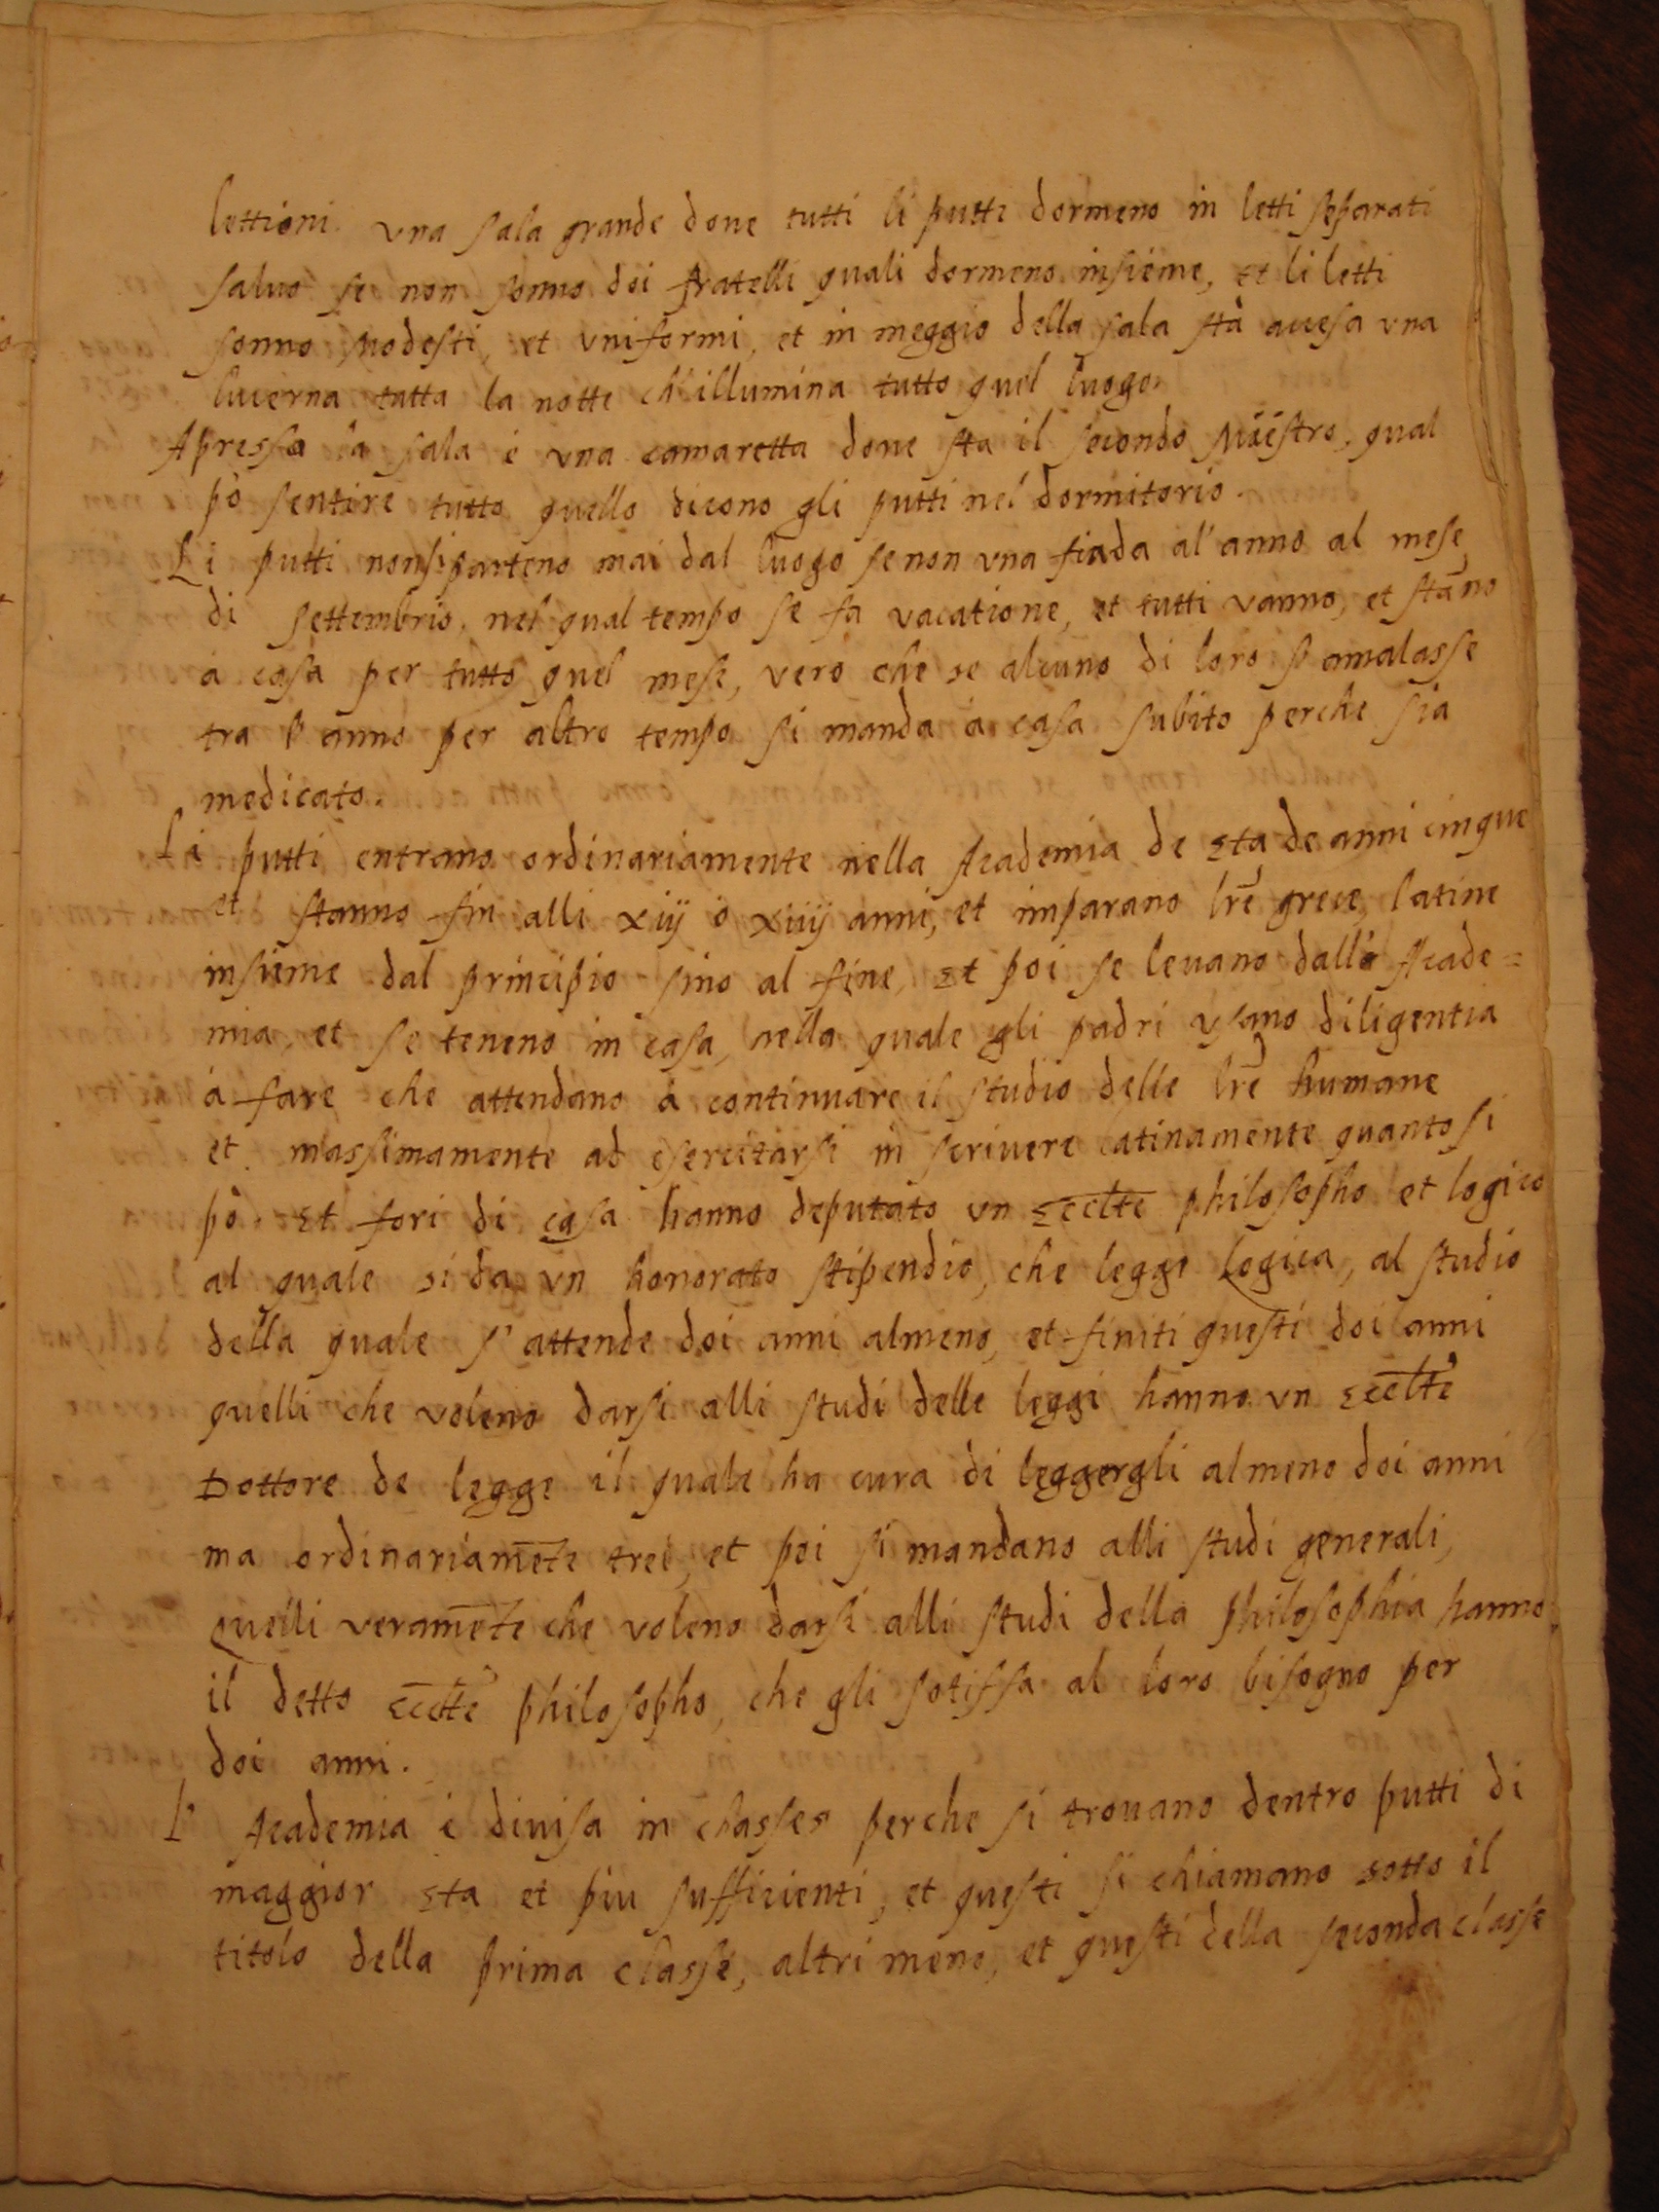 lettioni. vna sala grande doue tutti li putti dormeno in letti separati
saluo se non sonno doi fratelli quali dormeno insieme, et li letti
sonno modesti, et vniformi, et in meggio della sala stà accesa vna
lucerna tutta la notte ch'illumina tutto quel luogo.
Apresso la sala è vna camaretta doue sta il secondo Maestro, qual
pò sentire tutto quello dicono gli putti nel dormitorio.
Li putti non si parteno mai dal luogo se non vna fiada al'anno al mese
di settembrio, nel qual tempo se fa vacatione, et tutti vanno, et stāno
à casa per tutto quel mese, vero che se alcuno di loro s'amalasse
tra l'anno per altro tempo si manda à casa subito perche sia
medicato.
Li putti entrano ordinariamente nella Academia de eta de anni cinque
et stanno fin alli xiij ò xiiij anni, et imparano lrē grece, latine
insieme dal principio sino al fine, et poi se leuano dalla Acade=
mia, et se teneno in casa, nella quale gli padri vsano diligentia
à fare che attendano à continuare il studio delle lrē humane
et massimamente ad esercitarsi in scriuere latinamente quanto si
pò. et fori di casa hanno deputato vn eccltē philosopho et logico
al quale si da vn honorato stipendio, che legge Logica, al studio
della quale s'attende doi anni almeno, et finiti questi doi anni
quelli che voleno darsi alli studi delle leggi hanno vn eccltē
Dottore de legge il quale ha cura di leggergli almeno doi anni
ma ordinariamēte trei, et poi si mandano alli studi generali,
quelli veramēte che voleno darsi alli studi della philosophia hanno
il detto eccltē philosopho, che gli sotisfa al loro bisogno per
doi anni.
L'Academia è diuisa in classes perche si trouano dentro putti di
maggior eta et piu sufficienti, et questi si chiamano sotto il
titolo della prima classe, altri meno, et questi della seconda classe